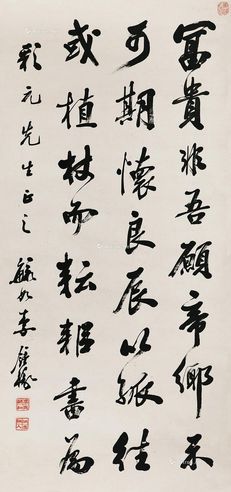 富貴非吾願帝鄉不
可期懷良辰以孤往
或植杖而耘耔書為
彩元先生正之